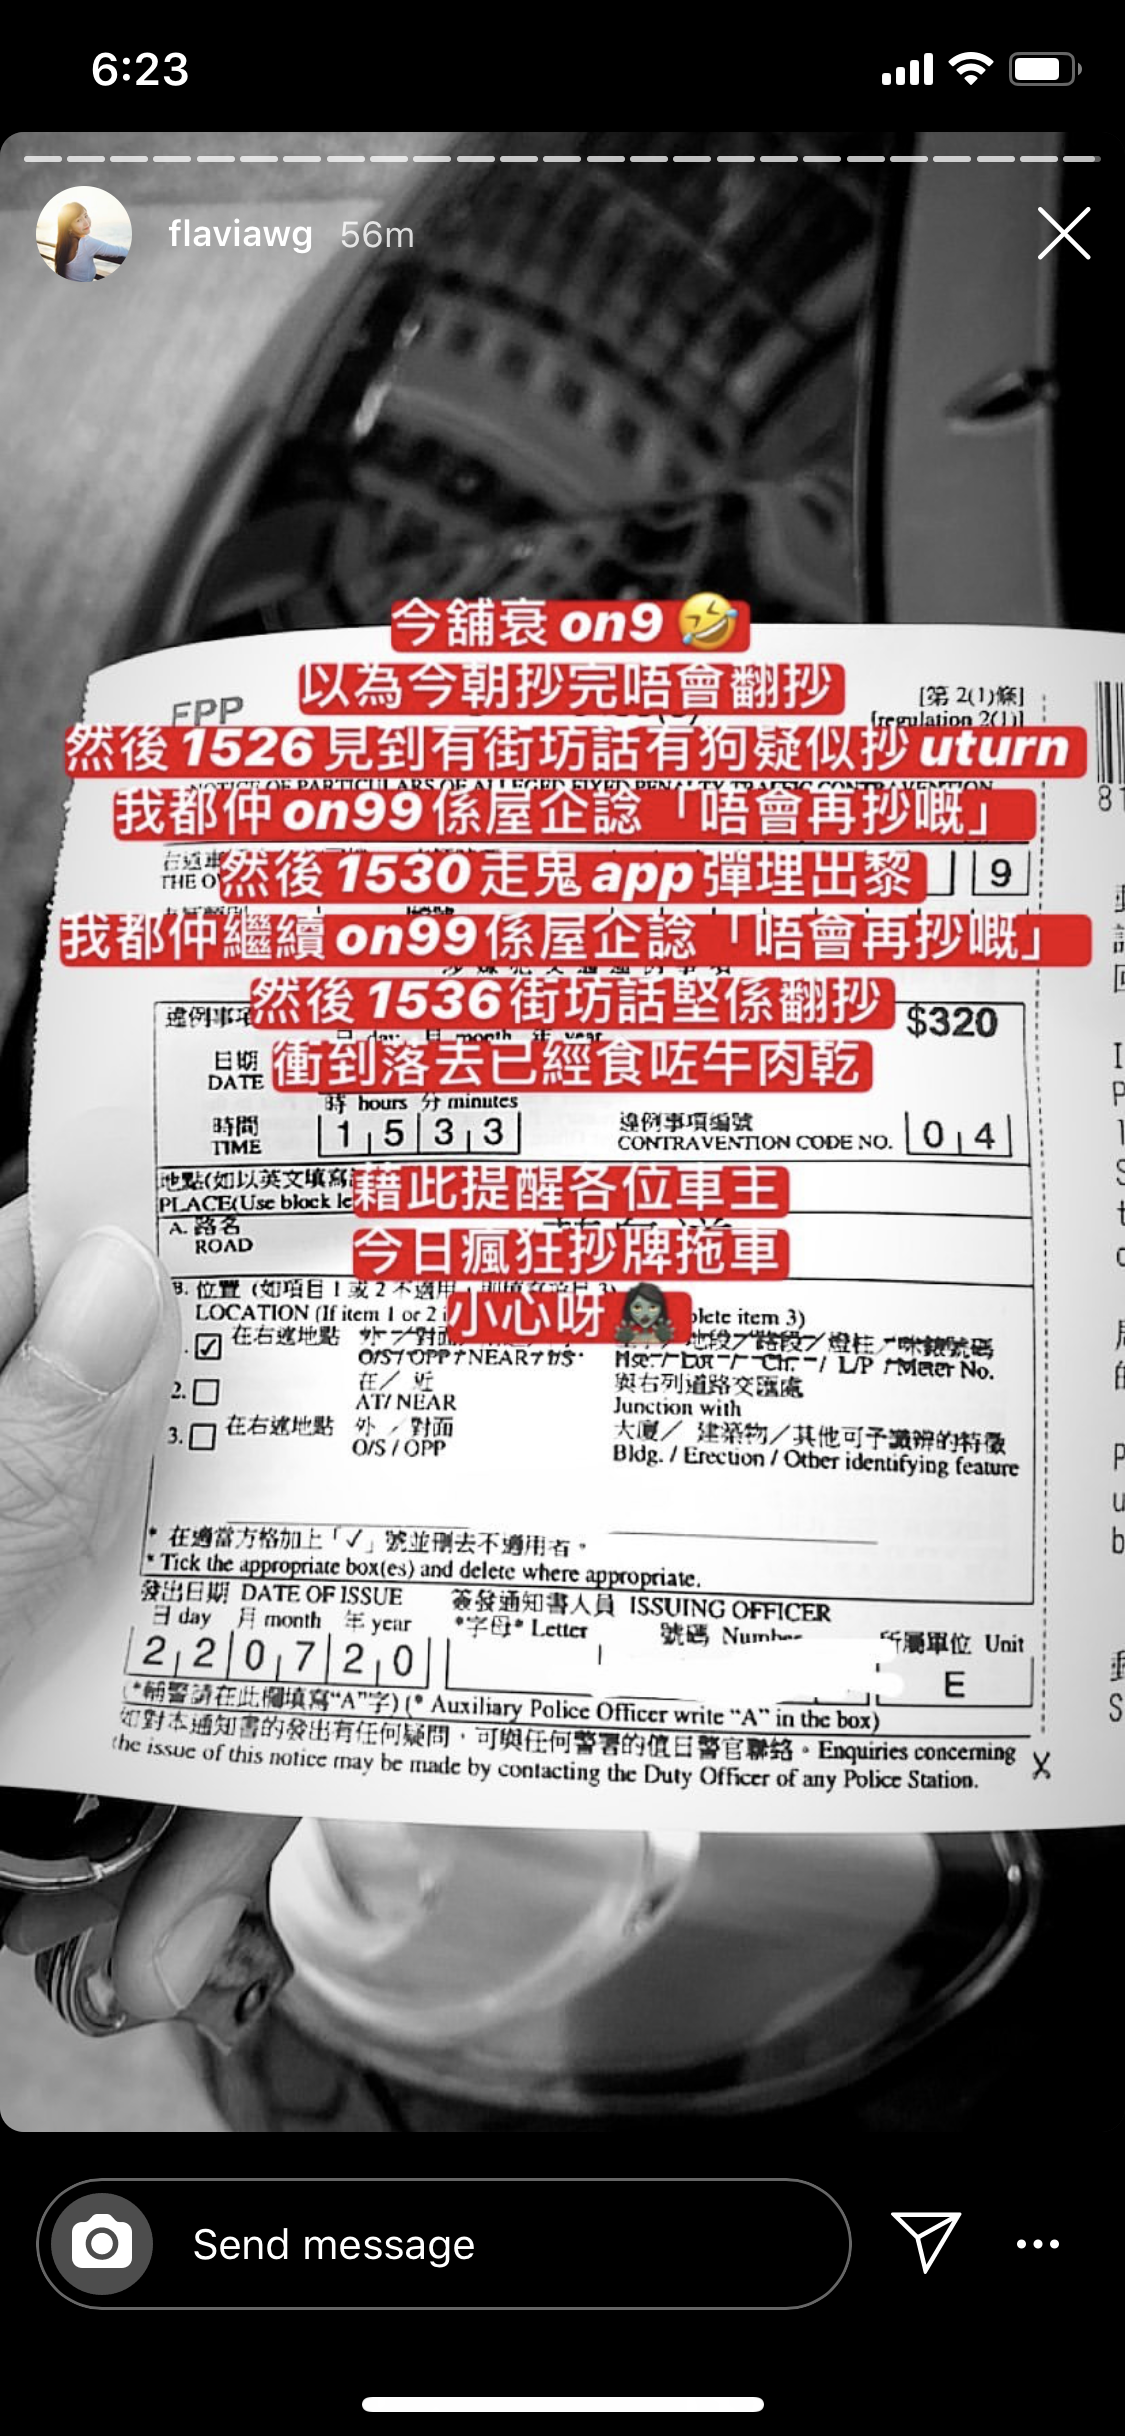 6:23
flaviawg 56m
今舖衰 on9 🤣
以為今朝抄完唔會翻抄
FPP
[第 2(1)條]
[regulation 2(1)]
然後 1526 見到有街坊話有狗疑似抄 uturn
NOTICE OF PARTICULARS OF ALLEGED FIXED PENALTY TRAFFIC CONTRAVENTION
81
我都仲 on99 係屋企諗「唔會再抄嘅」
然後 1530 走鬼 app 彈埋出黎
THE
9
我都仲繼續 on99 係屋企諗「唔會再抄嘅」
然後 1536 街坊話堅係翻抄
違例事項
日 day 月 month 年 year
$320
衝到落去已經食咗牛肉乾
日期
DATE
時 hours 分 minutes
時間
TIME
1 5 3 3
違例事項編號
CONTRAVENTION CODE NO.
0 4
地點(如以英文填寫
PLACE(Use block le
藉此提醒各位車主
A. 路名
ROAD
今日瘋狂抄牌拖車
B. 位置 (如項目 1 或 2 不適用，則填寫項目 3)
LOCATION (If item 1 or 2 i
plete item 3)
小心呀 🧟‍♀️
✓ 在右述地點 外／對面
O/S / OPP / NEAR / I/S
地段／路段／燈柱／咪錶號碼
Hse. / Lot / Ch. / L/P / Meter No.
2. 在／近
AT/ NEAR
與右列道路交匯處
Junction with
3. 在右述地點 外／對面
O/S / OPP
大廈／建築物／其他可予識辨的特徵
Bldg. / Erection / Other identifying feature
* 在適當方格加上「✓」號並刪去不適用者。
* Tick the appropriate box(es) and delete where appropriate.
發出日期 DATE OF ISSUE
日 day 月 month 年 year
2 2 0 7 2 0
簽發通知書人員 ISSUING OFFICER
*字母* Letter
號碼 Number
所屬單位 Unit
E
(*輔警請在此欄填寫“A”字) (* Auxiliary Police Officer write “A” in the box)
如對本通知書的發出有任何疑問，可與任何警署的值日警官聯絡。Enquiries concerning
the issue of this notice may be made by contacting the Duty Officer of any Police Station.
Send message